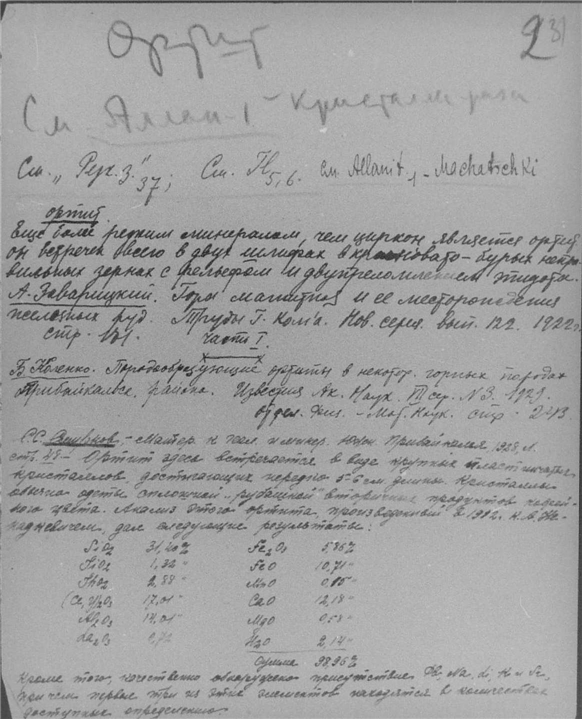 2
Ортит
См. Аллан. 1 - Кристаллы
См. "Реж. З." 37; См. H 5,6. см. Allanit 1 - Machatschki
ортит.
Еще более редким минералом, чем циркон является ортит
он встречен всего в двух шлифах в красновато-бурых непра-
вильных зернах с рельефом и двупреломлением эпидота.
А. Заварицкий. Гора Магнитная и ее месторождения
железных руд. Труды Г. Ком-а. Нов. серия. вып. 122. 1922 г.
стр. часть I.
Б. Коленко. Породообразующие ортиты в некотор. горных породах
Прибайкальск. района. Известия Ак. Наук. VII сер. N 3. 1929.
отдел. физ. - Мат. Наук. стр. 243.
С.С. - Матер. к хим. и минер. Прибайкалья 1928, Л.
стр. 48 - Ортит здесь встречается в виде крупных пластинчатых
кристаллов достигающих нередко 5-6 см. длины. Кристаллы
обычно одеты сплошной рубашкой вторичных продуктов
ного цвета. Анализ этого ортита, произведенный в 1902. К. А. Не-
надкевичем, дал следующие результаты:
SiO2 31,40% Fe2O3 5,86%
TiO2 1,32" FeO 10,71"
ThO2 2,88" MnO 0,05"
(Ce, Y)2O3 17,01" CaO 12,18"
Al2O3 14,01" MgO 0,58"
La2O3 0,72 H2O 2,14"
Сумма 98,96%
Кроме того, качественно обнаружено присутствие Pb, Na, Li, K и
причем первые три из этих элементов находятся в количествах
доступных определению.